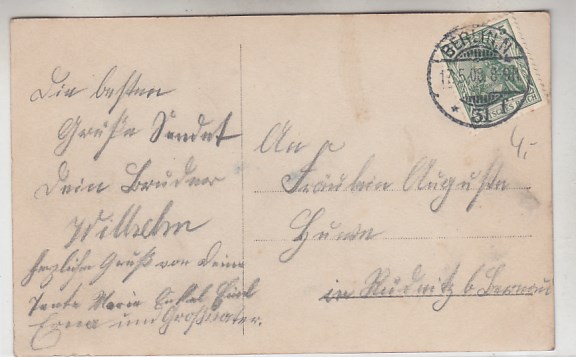 Die besten
Grüße Sendet
Dein Bruder
Wilhelm
herzlichen Gruß von Deine
Tante Marie Onkel
Erna und Großvater.
BERLIN.N.
17.5.09
* 31 f
An
Fräulein Auguste
in Rüdnitz b Bernau
4,-